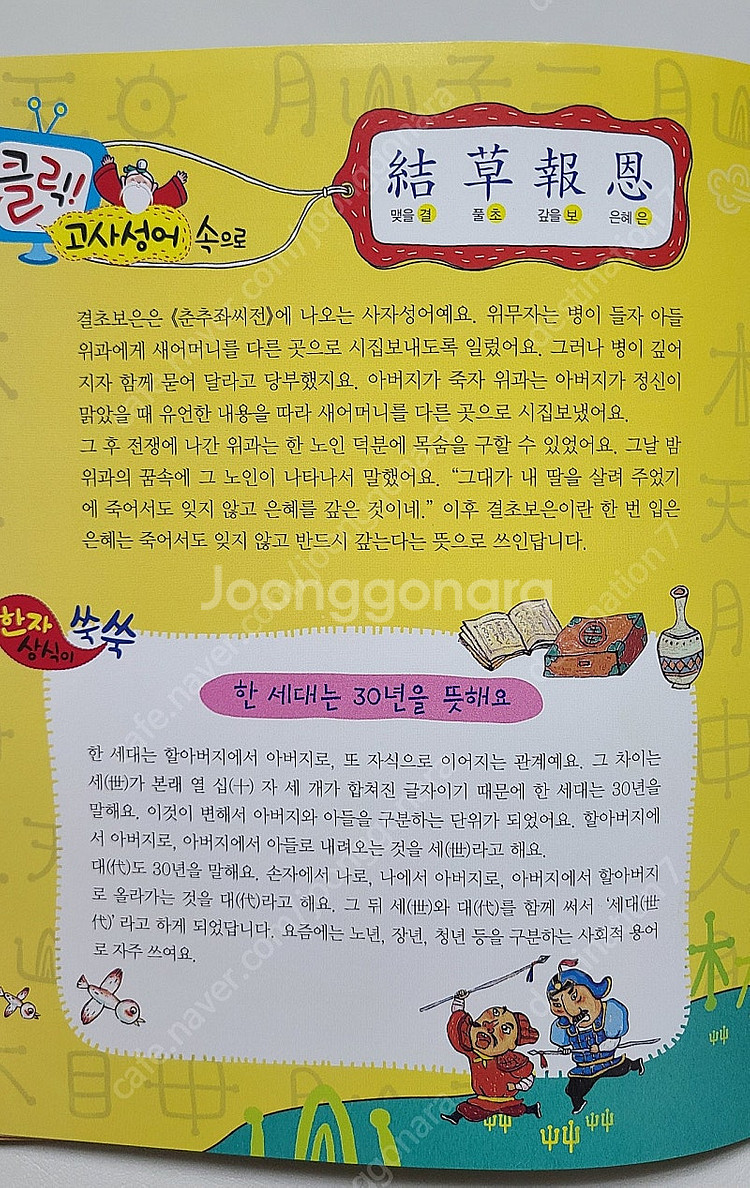 클릭!!
고사성어 속으로
結草報恩
맺을 결 풀 초 갚을 보 은혜 은
결초보은은 《춘추좌씨전》에 나오는 사자성어예요. 위무자는 병이 들자 아들
위과에게 새어머니를 다른 곳으로 시집보내도록 일렀어요. 그러나 병이 깊어
지자 함께 묻어 달라고 당부했지요. 아버지가 죽자 위과는 아버지가 정신이
맑았을 때 유언한 내용을 따라 새어머니를 다른 곳으로 시집보냈어요.
그 후 전쟁에 나간 위과는 한 노인 덕분에 목숨을 구할 수 있었어요. 그날 밤
위과의 꿈속에 그 노인이 나타나서 말했어요. “그대가 내 딸을 살려 주었기
에 죽어서도 잊지 않고 은혜를 갚은 것이네.” 이후 결초보은이란 한 번 입은
은혜는 죽어서도 잊지 않고 반드시 갚는다는 뜻으로 쓰인답니다.
Joonggonara
한자 상식이 쑥쑥
한 세대는 30년을 뜻해요
한 세대는 할아버지에서 아버지로, 또 자식으로 이어지는 관계예요. 그 차이는
세(世)가 본래 열 십(十) 자 세 개가 합쳐진 글자이기 때문에 한 세대는 30년을
말해요. 이것이 변해서 아버지와 아들을 구분하는 단위가 되었어요. 할아버지에
서 아버지로, 아버지에서 아들로 내려오는 것을 세(世)라고 해요.
대(代)도 30년을 말해요. 손자에서 나로, 나에서 아버지로, 아버지에서 할아버지
로 올라가는 것을 대(代)라고 해요. 그 뒤 세(世)와 대(代)를 함께 써서 ‘세대(世
代)’라고 하게 되었답니다. 요즘에는 노년, 장년, 청년 등을 구분하는 사회적 용어
로 자주 쓰여요.